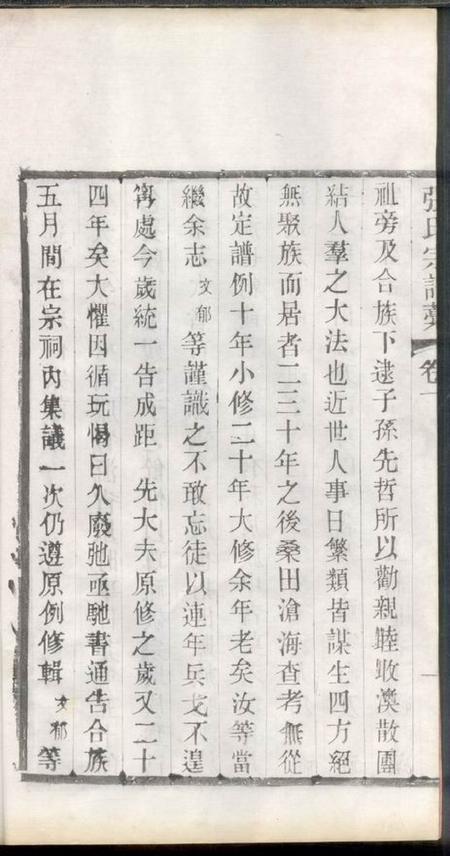 張氏宗譜 卷一
祖旁及合族下逮子孫先哲所以勸親睦收渙散團
結人羣之大法也近世人事日繁類皆謀生四方絕
無聚族而居者二三十年之後桑田滄海查考無從
故定譜例十年小修二十年大修余年老矣汝等當
繼余志文郁等謹識之不敢忘徒以連年兵戈不遑
甯處今歲統一告成距 先大夫原修之歲又二十
四年矣大懼因循玩愒日久廢弛亟馳書通告合族
五月間在宗祠內集議一次仍遵原例修輯文郁等